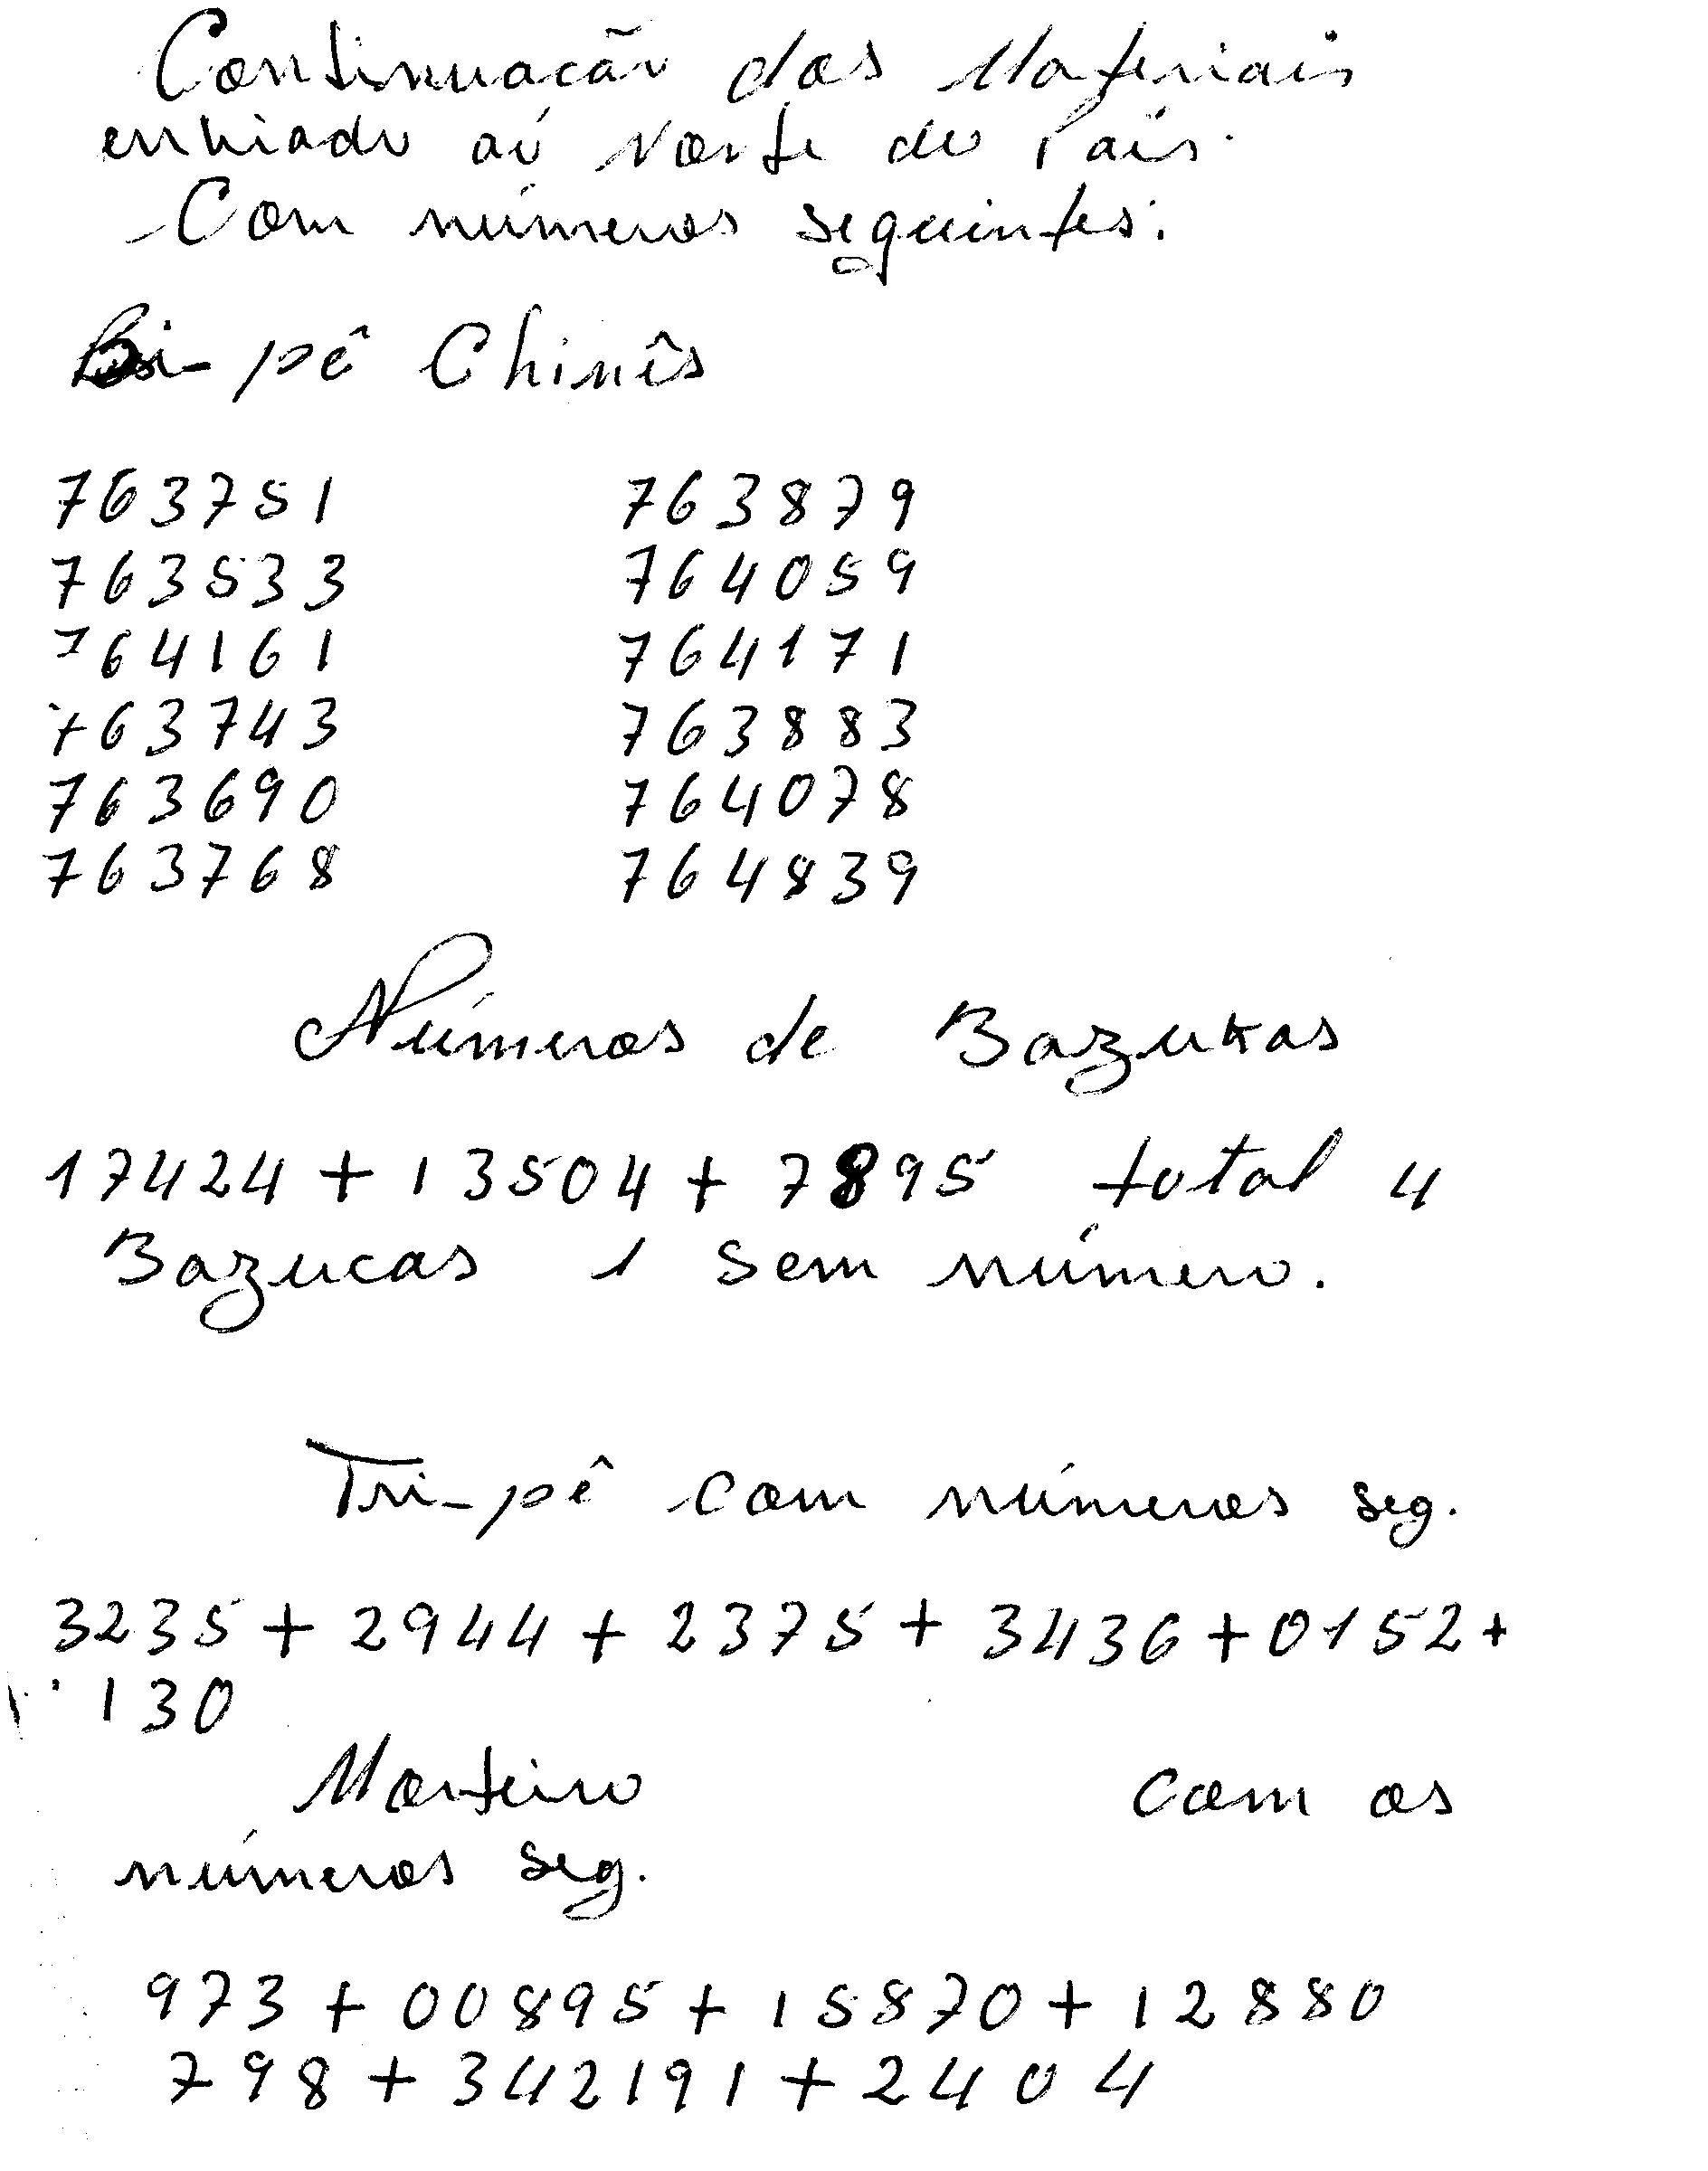 Continuacão dos Materiais
enviado aó Norte do País.
Com números seguintes:
Bi-pê Chinês
763751 763879
763533 764059
764161 764171
763743 763883
763690 764078
763768 764839
Números de Bazukas
17424 + 13504 + 7895 total 4
Bazucas 1 sem número.
Tri-pê com números seg.
3235 + 2944 + 2375 + 3436 + 0152 +
130
Morteiro com os
números seg.
973 + 00895 + 15870 + 12880
798 + 342191 + 2404